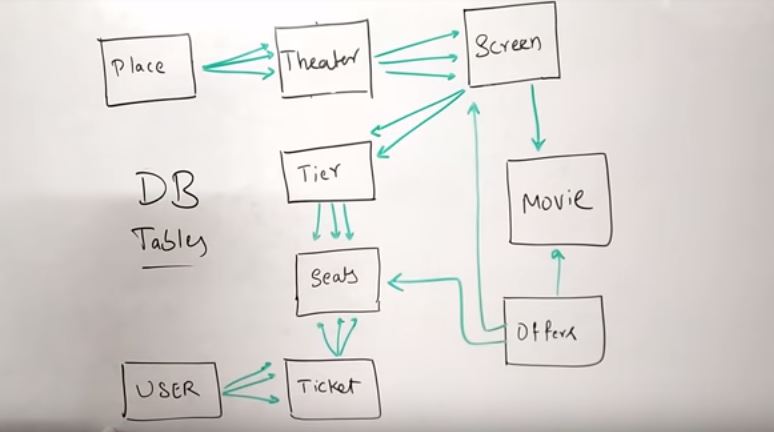 Place
Theater
Screen
Tier
DB
Tables
Movie
Seats
Offers
USER
Ticket